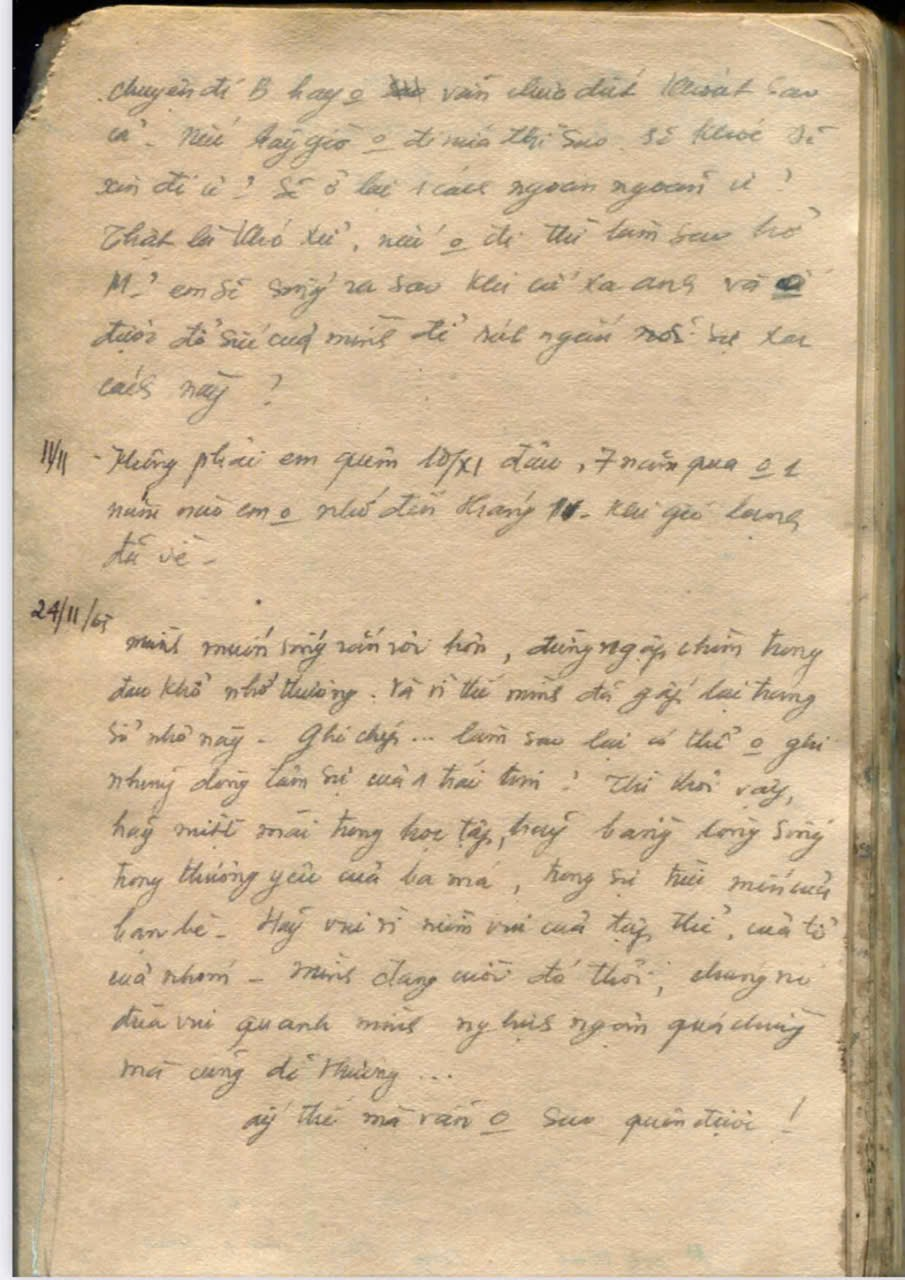 chuyện đi B hay o vẫn chưa dứt khoát sao
cả. Nếu bây giờ o đi nữa thì sao. Sẽ khóc sẽ
xin đi ư? Sẽ ở lại 1 cách ngoan ngoãn ư?
Thật là khó xử, nếu o đi thì làm sao hở
M.? em sẽ sống ra sao khi cứ xa anh và o
được đổ sức của mình để rút ngắn sự xa
cách này?
11/11 - Không phải em quên 10/XI đâu, 7 năm qua o 1
năm nào em o nhớ đến tháng 11 - khi gió lạnh
đã về -
24/11/65
mình muốn sống rắn rỏi hơn, đừng ngập chìm trong
đau khổ nhớ thương. Và vì thế mình đã gấp lại trang
sổ nhỏ này - Ghi chép... làm sao lại có thể o ghi
nhưng dòng tâm sự của 1 trái tim? Thì thôi vậy,
hãy miệt mài trong học tập, hãy bằng lòng sống
trong thương yêu của ba má, trong sự trìu mến của
bạn bè - Hãy vui vì niềm vui của tập thể, của tổ
của nhóm - Mình đang cười đó thôi, chúng nó
đùa vui quanh mình nghịch ngợm quá chừng
mà cũng dễ thương ...
ấy thế mà vẫn o sao quên được!